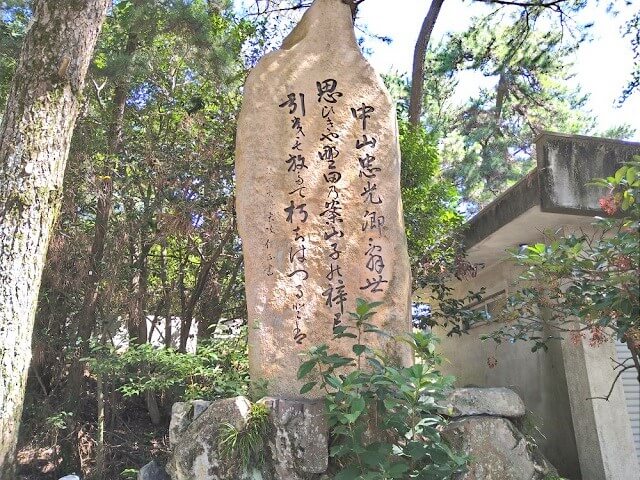 中山忠光卿辞世
思ひきや野田乃案山子の梓弓
引きも放たで朽ちはつるとは